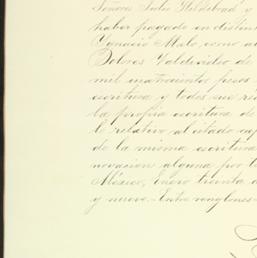 Señores Julio Hildebrad y
haber pagado en distin
Ygnacio Malo, como al
Dolores Valdovideo de
mil cuatrocientos pesos
escritura y todos sus ré
la propia escritura de
lo relativo al citado cap
de la misma escritura
novacion alguna por lo
México, Enero treinta a
y nueve - Entre renglones -